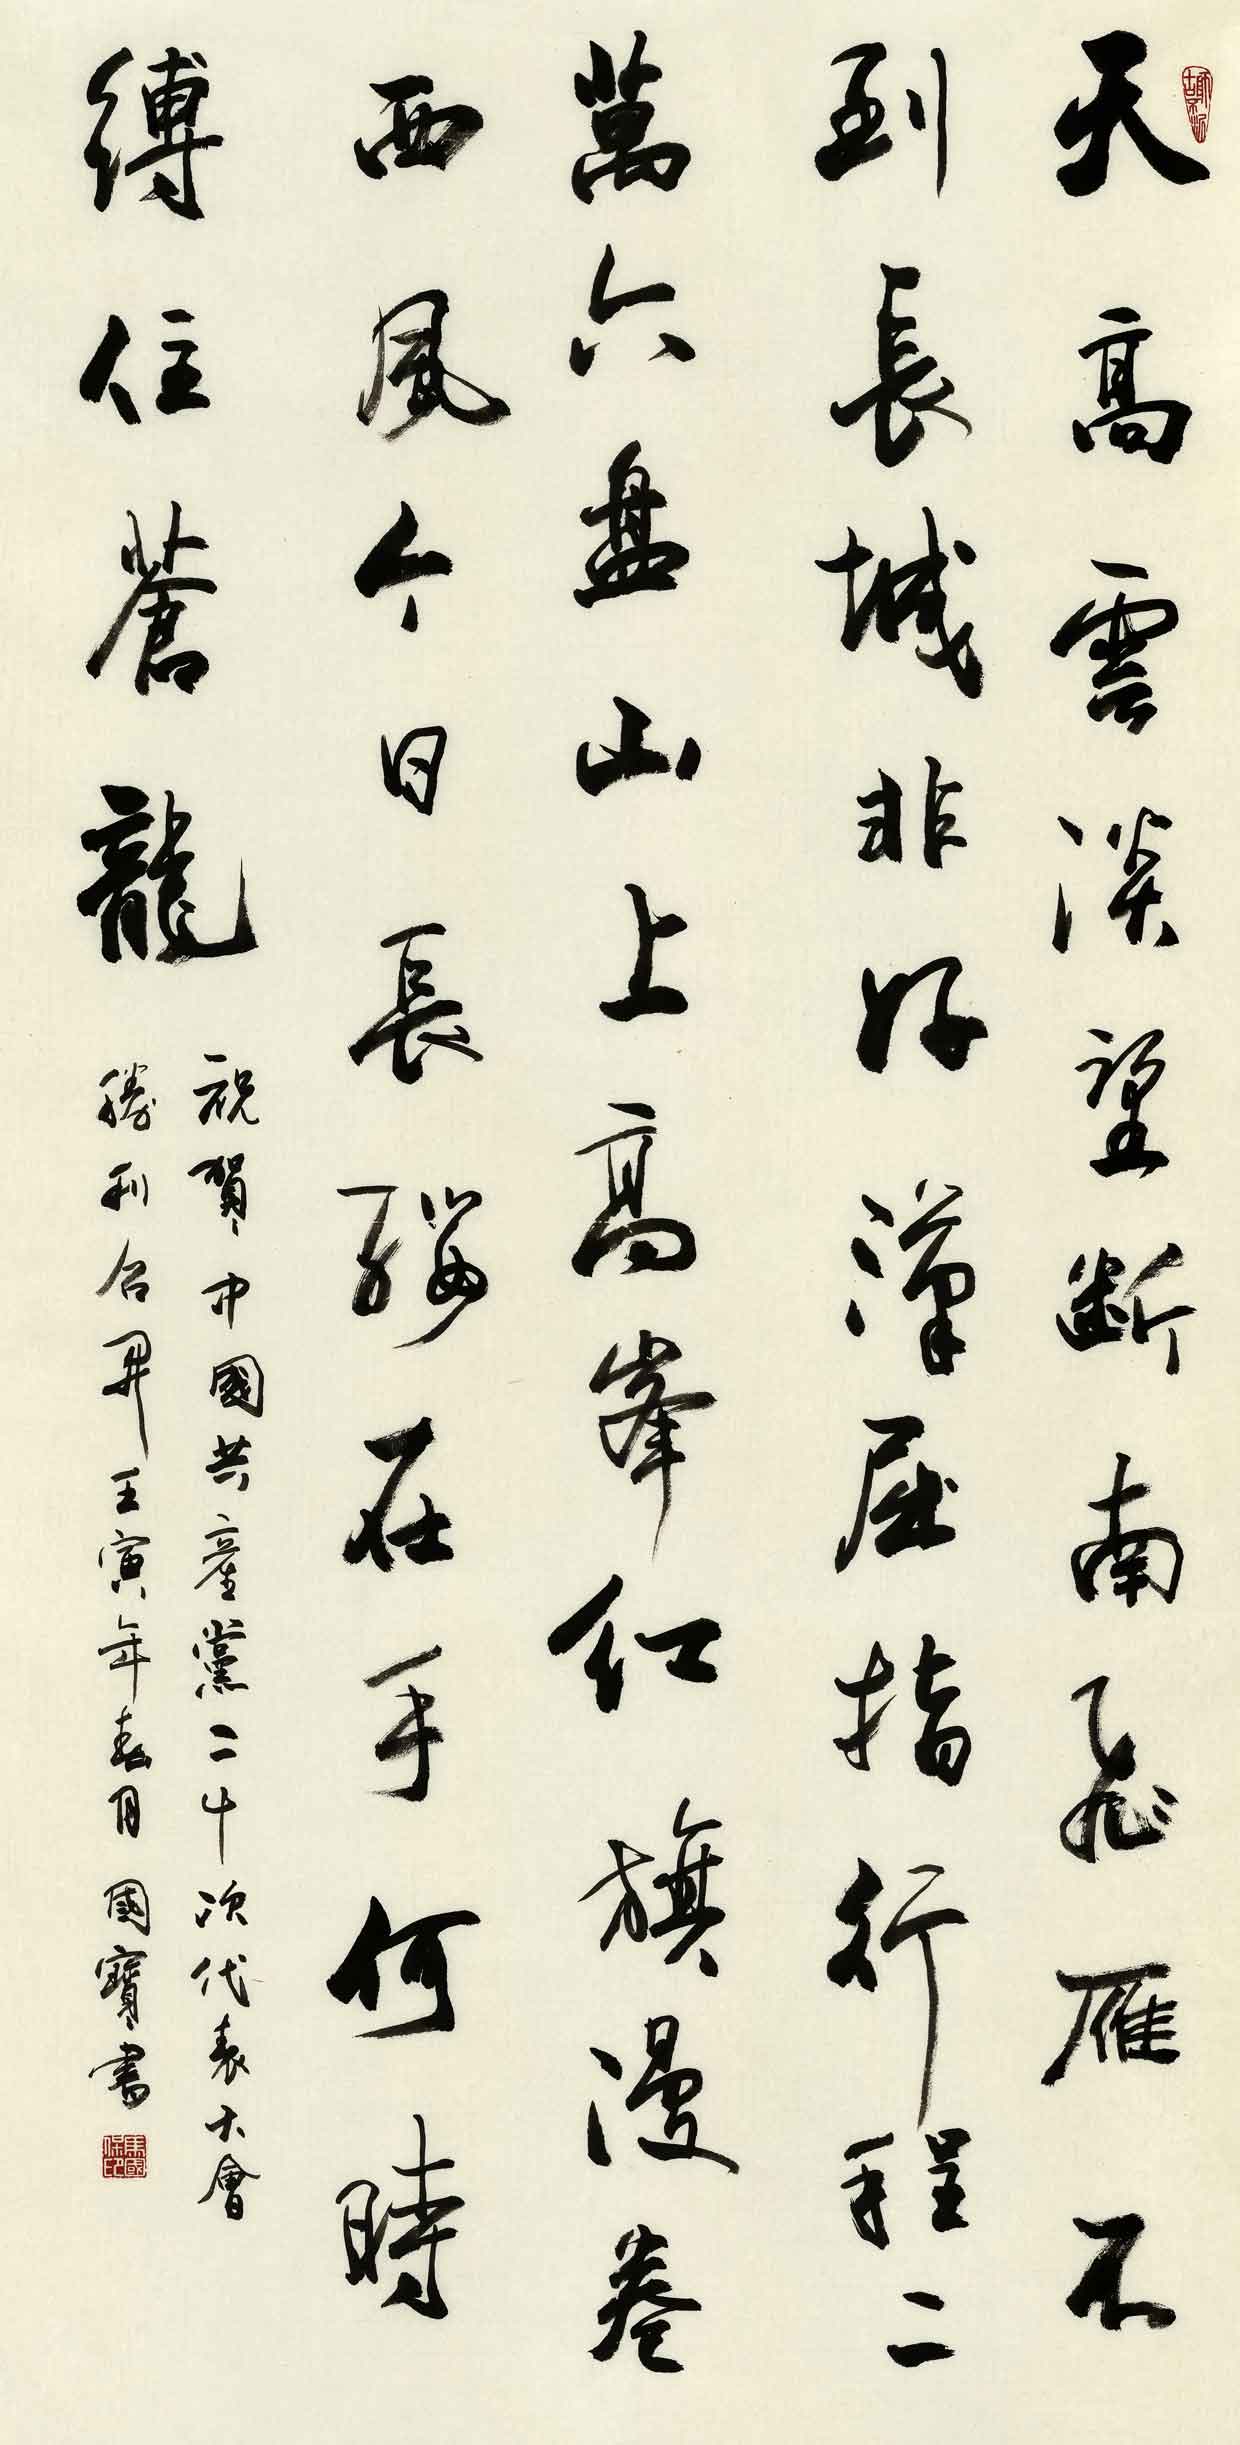 天高雲淡望断南飛雁不
到長城非好漢屈指行程二
萬六盘山上高峯红旗漫卷
西風今日長缨在手何時
縛住蒼龍
祝賀中國共產黨二十次代表大會
勝利召開壬寅年春月國寶書
馬國保印